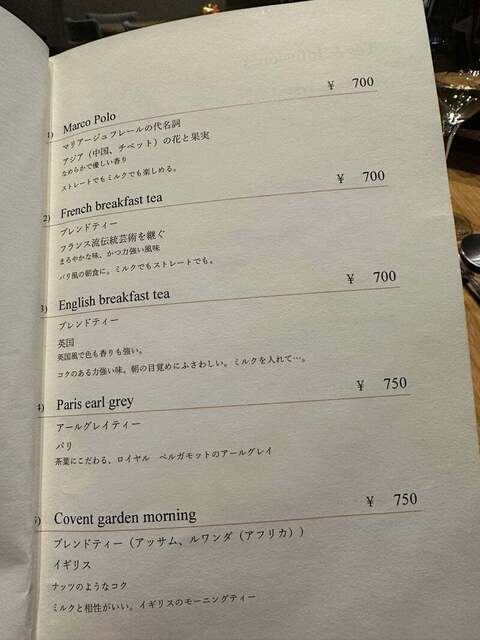 1) Marco Polo ¥ 700
マリアージュフレールの代名詞
アジア（中国、チベット）の花と果実
なめらかで優しい香り
ストレートでもミルクでも楽しめる。
2) French breakfast tea ¥ 700
ブレンドティー
フランス流伝統芸術を継ぐ
まろやかな味、かつ力強い風味
パリ風の朝食に。ミルクでもストレートでも。
3) English breakfast tea ¥ 700
ブレンドティー
英国
英国風で色も香りも強い。
コクのある力強い味。朝の目覚めにふさわしい。ミルクを入れて…。
4) Paris earl grey ¥ 750
アールグレイティー
パリ
茶葉にこだわる、ロイヤル ベルガモットのアールグレイ
5) Covent garden morning ¥ 750
ブレンドティー（アッサム、ルワンダ（アフリカ））
イギリス
ナッツのようなコク
ミルクと相性がいい。イギリスのモーニングティー